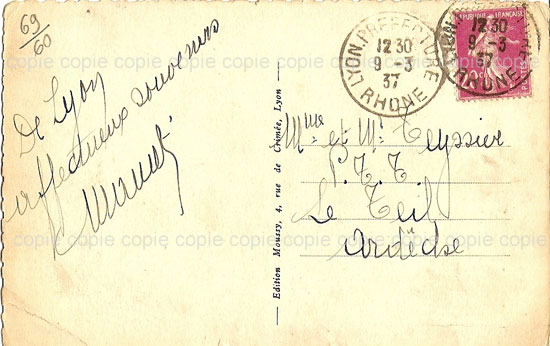 69
60
De Lyon
affectueux souvenirs
LYON.PREFECTURE
12 30
9 - 3
37
RHONE
POSTES
12 30
9 - 3
37
RHONE
Mme et Mr Teyssier
P.T.T.
Le Teil
Ardèche
Edition Moussy, 4, rue de Cronée, Lyon
copie copie copie copie copie copie copie copie copie
copie copie copie copie copie copie copie copie copie